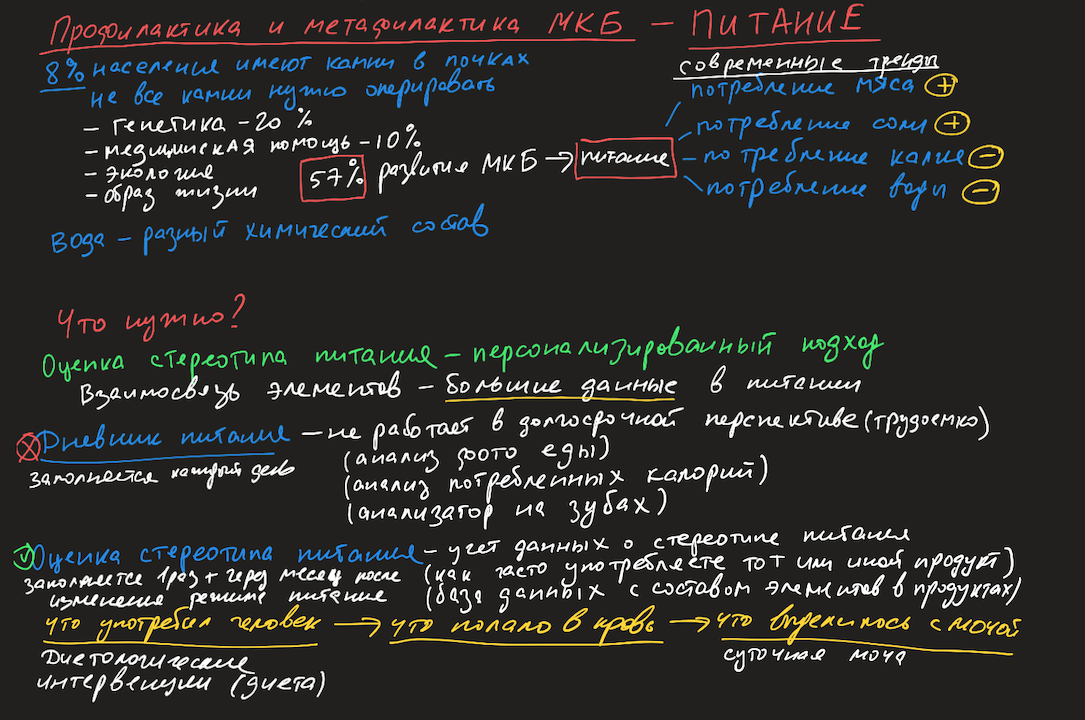 Профилактика и метафилактика МКБ – ПИТАНИЕ
8% населения имеют камни в почках
не все камни нужно оперировать
– генетика – 20%
– медицинская помощь – 10%
– экология
– образ жизни
57% развития МКБ → питание
современные тренды
потребление мяса +
потребление соли +
– потребление калия –
потребление воды –
Вода – разный химический состав
Что нужно?
Оценка стереотипа питания – персонализированный подход
Взаимосвязь элементов – большие данные в питании
Дневник питания – не работает в долгосрочной перспективе (трудоемко)
заполняется каждый день
(анализ фото еды)
(анализ потребленных калорий)
(анализатор на зубах)
Оценка стереотипа питания – учет данных о стереотипе питания
заполняется 1 раз + через месяц после
изменения режима питание
(как часто употребляете тот или иной продукт)
(база данных с составом элементов в продуктах)
что употребил человек → что попало в кровь → что выделилось с мочой
Диетологические
интервенции (диета)
суточная моча